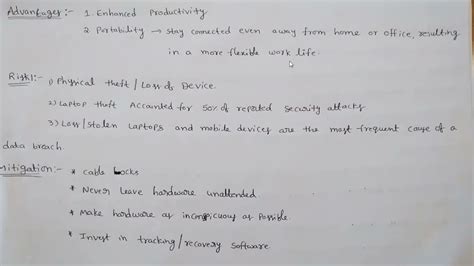 Advantages:- 1. Enhanced Productivity
2 Portability → stay connected even away from home or office, resulting
in a more flexible work life.
Risk1:- 1) Physical theft / Loss of Device.
2) Laptop theft Accounted for 50% of reported security attacks
3) Loss/stolen Laptops and mobile devices are the most frequent cause of a
data breach.
Mitigation:- * cable Locks
* Never Leave hardware unattended.
* Make hardware as inconspicuous as Possible.
* Invest in tracking/recovery software